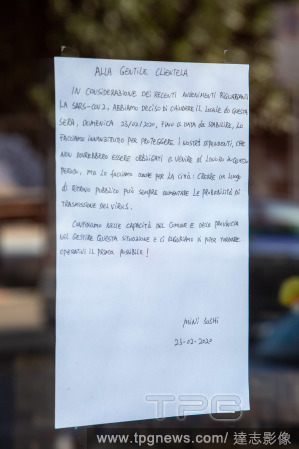 ALLA GENTILE CLIENTELA
IN CONSIDERAZIONE DEI RECENTI AVVENIMENTI RIGUARDANTI
LA SARS-COV2, ABBIAMO DECISO DI CHIUDERE IL LOCALE DA QUESTA
SERA, DOMENICA 23/02/2020, FINO A DATA DA STABILIRE. LO
FACCIAMO INNANZITUTTO PER PROTEGGERE I NOSTRI DIPENDENTI, CHE
NON DOVREBBERO ESSERE OBBLIGATI A VENIRE AL LAVORO IN QUESTO
PERIODO, MA LO FACCIAMO ANCHE PER LA CITTÀ: CREARE UN LUOGO
DI RITROVO PUBBLICO PUÒ SEMPRE AUMENTARE LE PROBABILITÀ DI
TRASMISSIONE DEL VIRUS.
CONFIDIAMO NELLE CAPACITÀ DEL COMUNE E DELLA PROVINCIA
NEL GESTIRE QUESTA SITUAZIONE E CI AUGURIAMO DI POTER TORNARE
OPERATIVI IL PRIMA POSSIBILE!
MINI SUSHI
23-02-2020
TPG
www.tpgnews.com/ 達志影像